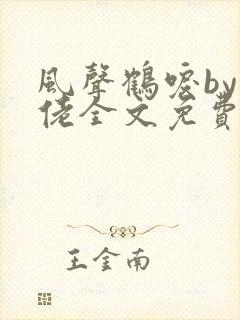 風聲鶴唳by
佬全文免費
王金南